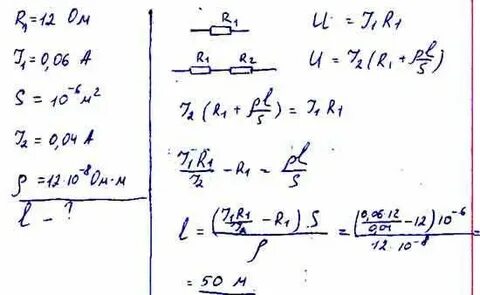 R₁ = 12 Ом
I₁ = 0,06 А
S = 10⁻⁶ м²
I₂ = 0,04 А
ρ = 12·10⁻⁸ Ом·м
l - ?
R₁
R₁ R₂
U = I₁R₁
U = I₂(R₁ + ρl/S)
I₂(R₁ + ρl/S) = I₁R₁
I₁R₁/I₂ - R₁ = ρl/S
l = (I₁R₁/I₂ - R₁)·S/ρ = (0,06·12/0,04 - 12)10⁻⁶/12·10⁻⁸ =
= 50 м